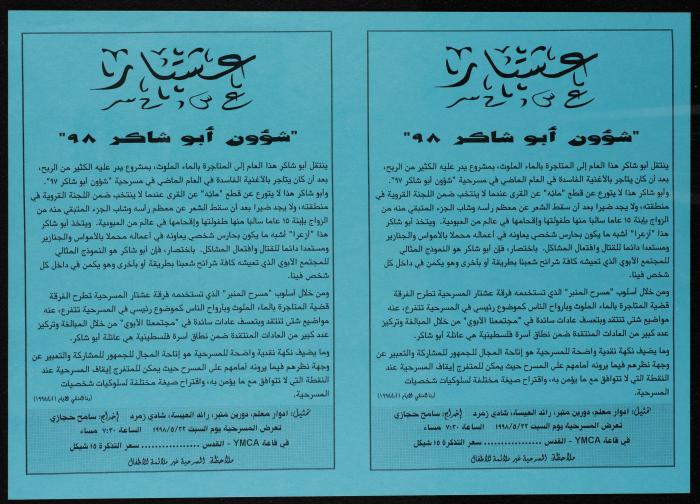 عشتار
"شؤون أبو شاكر ٩٨"
ينتقل أبو شاكر هذا العام إلى المتاجرة بالماء الملوث، بمشروع يدر عليه الكثير من الربح،
بعد أن كان يتاجر بالأغنية الفاسدة في العام الماضي في مسرحية "شؤون أبو شاكر ٩٧".
وأبو شاكر هذا لا يتورع عن قطع "مائه" عن القرى عندما لا ينتخب ضمن اللجنة القروية في
منطقته، ولا يجد ضيرا بعد أن سقط الشعر عن معظم رأسه وشاب الجزء المتبقي منه من
الزواج بإبنة ١٥ عاما سالبا منها طفولتها وإقحامها في عالم من العبودية. ويتخذ أبو شاكر
هذا "أزعرا" أشبه ما يكون بحارس شخصي يعاونه في أعماله محملا بالأمواس والجنازير
ومستعدا دائما للقتال وافتعال المشاكل. باختصار، فإن أبو شاكر هو النموذج المثالي
للمجتمع الأبوي الذي تعيشه كافة شرائح شعبنا بطريقة أو بأخرى وهو يكمن في داخل كل
شخص فينا.
ومن خلال أسلوب "مسرح المنبر" الذي تستخدمه فرقة عشتار المسرحية تطرح الفرقة
قضية المتاجرة بالماء الملوث وبأرواح الناس كموضوع رئيسي في المسرحية تتفرع، عنه
مواضيع شتى تنتقد وبتعسف عادات سائدة في "مجتمعنا الأبوي" من خلال المبالغة وتركيز
عدد كبير من العادات المنتقدة ضمن نطاق أسرة فلسطينية هي عائلة أبو شاكر.
وما يضيف نكهة نقدية واضحة للمسرحية هو إتاحة المجال للجمهور للمشاركة والتعبير عن
وجهة نظرهم فيما يرونه أمامهم على المسرح حيث يمكن للمتفرج إيقاف المسرحية عند
النقطة التي لا تتوافق مع ما يؤمن به، واقتراح صيغة مختلفة لسلوكيات شخصيات
المسرحية.
تمثيل: ادوار معلم، دورين منير، رائد العيسة، شادي زمرد إخراج: سامح حجازي
تعرض المسرحية يوم السبت ١٩٩٨/٥/٢٣ الساعة ٧:٣٠ مساء
في قاعة YMCA - القدس ................ سعر التذكرة ١٥ شيكل
ملاحظة: المسرحية غير ملائمة للأطفال
عشتار
"شؤون أبو شاكر ٩٨"
ينتقل أبو شاكر هذا العام إلى المتاجرة بالماء الملوث، بمشروع يدر عليه الكثير من الربح،
بعد أن كان يتاجر بالأغنية الفاسدة في العام الماضي في مسرحية "شؤون أبو شاكر ٩٧".
وأبو شاكر هذا لا يتورع عن قطع "مائه" عن القرى عندما لا ينتخب ضمن اللجنة القروية في
منطقته، ولا يجد ضيرا بعد أن سقط الشعر عن معظم رأسه وشاب الجزء المتبقي منه من
الزواج بإبنة ١٥ عاما سالبا منها طفولتها وإقحامها في عالم من العبودية. ويتخذ أبو شاكر
هذا "أزعرا" أشبه ما يكون بحارس شخصي يعاونه في أعماله محملا بالأمواس والجنازير
ومستعدا دائما للقتال وافتعال المشاكل. باختصار، فإن أبو شاكر هو النموذج المثالي
للمجتمع الأبوي الذي تعيشه كافة شرائح شعبنا بطريقة أو بأخرى وهو يكمن في داخل كل
شخص فينا.
ومن خلال أسلوب "مسرح المنبر" الذي تستخدمه فرقة عشتار المسرحية تطرح الفرقة
قضية المتاجرة بالماء الملوث وبأرواح الناس كموضوع رئيسي في المسرحية تتفرع، عنه
مواضيع شتى تنتقد وبتعسف عادات سائدة في "مجتمعنا الأبوي" من خلال المبالغة وتركيز
عدد كبير من العادات المنتقدة ضمن نطاق أسرة فلسطينية هي عائلة أبو شاكر.
وما يضيف نكهة نقدية واضحة للمسرحية هو إتاحة المجال للجمهور للمشاركة والتعبير عن
وجهة نظرهم فيما يرونه أمامهم على المسرح حيث يمكن للمتفرج إيقاف المسرحية عند
النقطة التي لا تتوافق مع ما يؤمن به، واقتراح صيغة مختلفة لسلوكيات شخصيات
المسرحية.
تمثيل: ادوار معلم، دورين منير، رائد العيسة، شادي زمرد إخراج: سامح حجازي
تعرض المسرحية يوم السبت ١٩٩٨/٥/٢٣ الساعة ٧:٣٠ مساء
في قاعة YMCA - القدس ................ سعر التذكرة ١٥ شيكل
ملاحظة: المسرحية غير ملائمة للأطفال